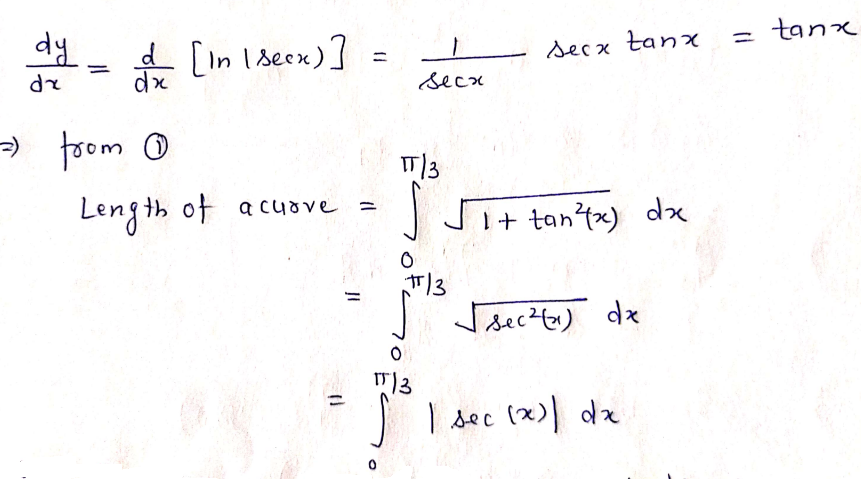 dy/dx = d/dx [ln |secx)] = 1/secx secx tanx = tanx
=> from ①
Length of a curve = ∫₀^(π/3) √(1 + tan²(x)) dx
= ∫₀^(π/3) √(sec²(x)) dx
= ∫₀^(π/3) |sec(x)| dx